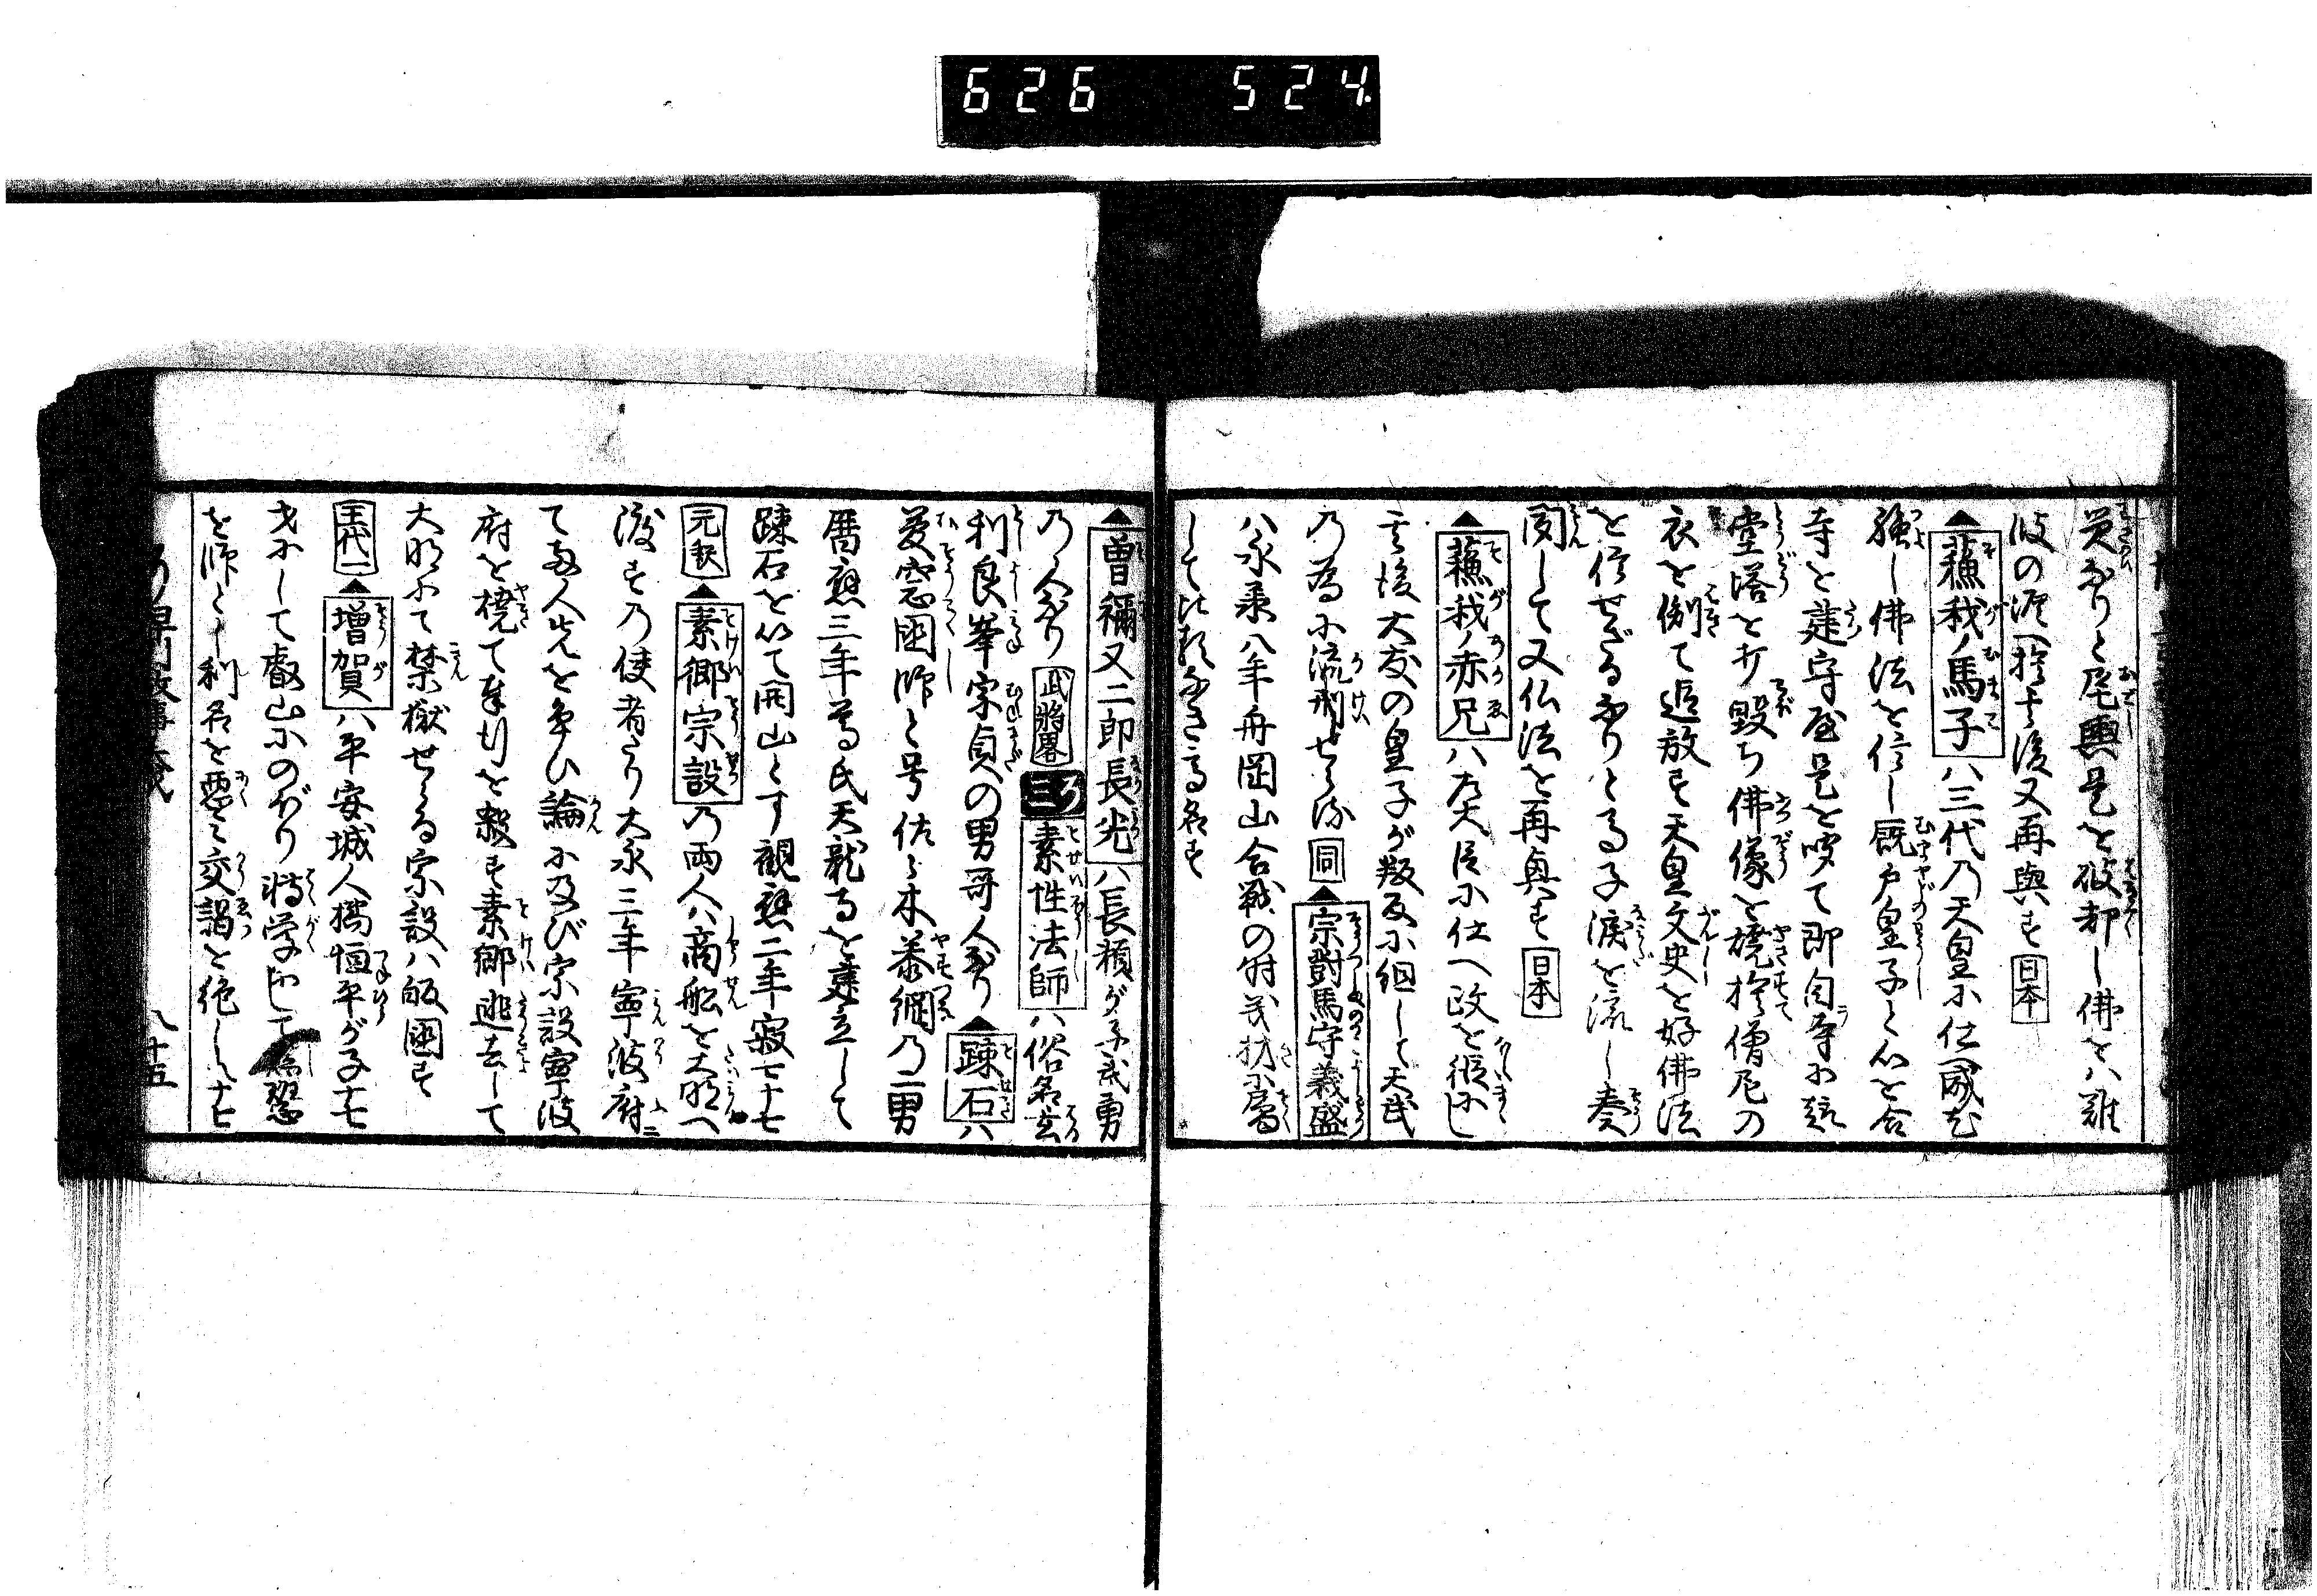 626 524
災なりと尾輿是を破却し佛をハ難
波の江へ捨其後又再興す 日本
▲蘇我ノ馬子ハ三代乃天皇に仕へ威尤
強し佛法を信し厩戸皇子と心を合
寺を建守屋是を時て即自寺に
堂塔を打毀ち佛像を焼捨僧尼の
衣を剥て追放す天皇文史を好佛法
を信せざるなりと馬子涙を流し奏
聞して又仏法を再興す 日本
▲蘇我ノ赤兄ハ左大臣に仕へ政を恣にし
其後大友の皇子が叛反に組して天武
乃為に流刑せらる 同 ▲宗對馬守義盛
ハ永承八年舟岡山合戦の時
して
▲曽禰又二郎長光ハ長頼が子武勇
乃人なり 武將畧 そ三 素性法師ハ俗名玄
利良峯宗貞の男哥人なり ▲疎石ハ
夢窓国師と号佐々木泰綱乃一男
暦應三年尊氏天龍寺を建立して
疎石を以て開山とす観應二年寂七十七
元 ▲素郷宗設乃両人ハ商舩を大明へ
渡す乃使者なり大永三年寧波府ニ
て両人先を争ひ論に及び宗設寧波
府を焼て奉行を殺す素郷逃去して
大明にて禁獄せらる宗設ハ皈國す
王代一 ▲増賀ハ平安城人橘恒平が子十七
才にして叡山にのぼり
を師とし利名を悪ミ交謁を絶し八十七
八十五